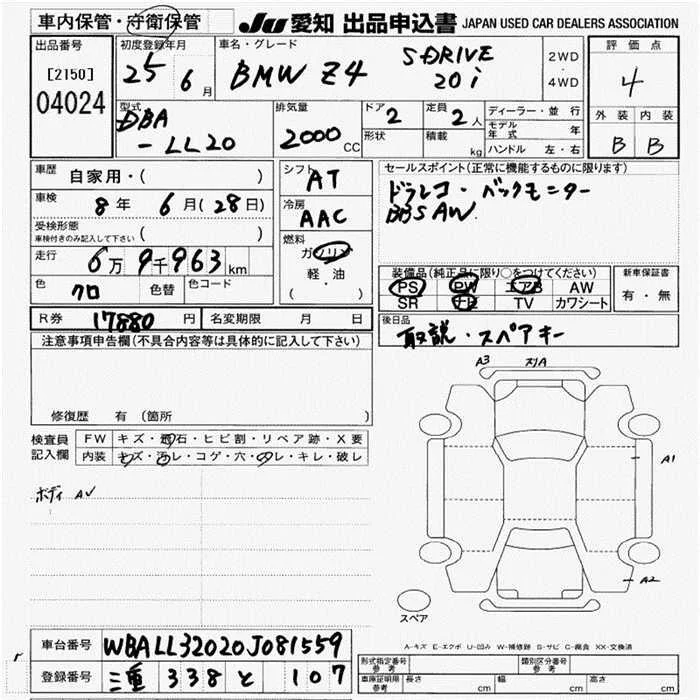 車内保管・守衛保管
JU 愛知 出品申込書 JAPAN USED CAR DEALERS ASSOCIATION
出品番号
[2150]
04024
初度登録年月
25 6月
車名・グレード
BMW Z4 S-DRIVE 20i
2WD
・
4WD
評価点
4
外装 内装
B B
型式
DBA
-LL20
排気量
2000 CC
ドア 2
定員 2人
形状
積載 kg
ディーラー・並行
モデル年式 年
ハンドル 左・右
車歴 自家用・( )
車検 8年 6月(28日)
受検形態
車検付きのみ記入して下さい ( )
走行 6万9千963km
色 クロ 色替 色コード
シフト AT
冷房 AAC
燃料
ガソリン
軽・油
( ・ )
セールスポイント(正常に機能するものに限ります)
ドラレコ・バックモニター
BBS AW.
装備品(純正品に限り○をつけてください)
PS PW エアB AW
SR ナビ TV カワシート
新車保証書
有・無
R券 17880 円 名変期限 月 日
後日品
取説・スペアキー
注意事項申告欄(不具合内容等は具体的に記入して下さい)
修復歴 有(箇所 )
検査員
記入欄
FW キズ・飛石・ヒビ割・リペア跡・X要
内装 キズ・汚レ・コゲ・穴・スレ・キレ・破レ
ボディ
A3
A1
A2
スペア
A-キズ E-エクボ U-凹み W-補修跡 S-サビ C-腐食 XX-交換済
車台番号 WBALL32020J081559
登録番号 三重 338 と 107
形式指定番号
参考
類別区分番号
参考
車庫証明用
参考
長さ cm 幅 cm 高さ cm